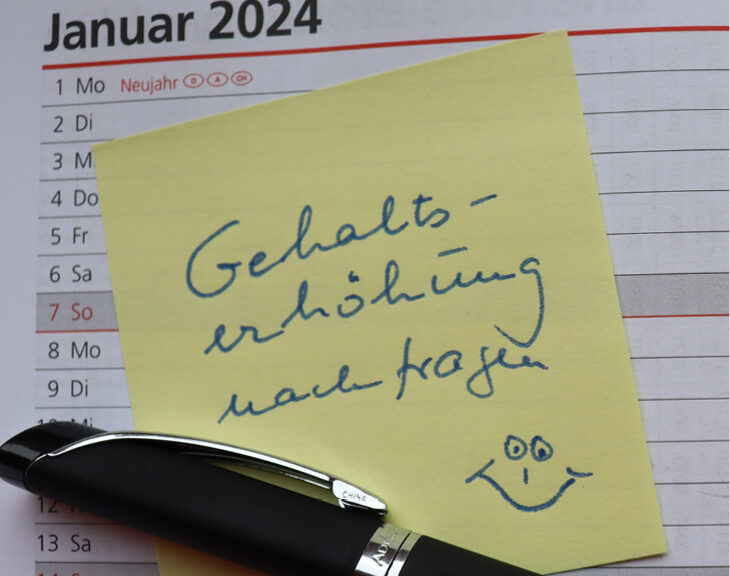 Januar 2024
1 Mo Neujahr D A CH
2 Di
3 M
4 Do
5 Fr
6 Sa
7 So
8 Mo
9 Di
10 Mi
12
13 Sa
14
Gehalts-
erhöhung
nach fragen
CHINA